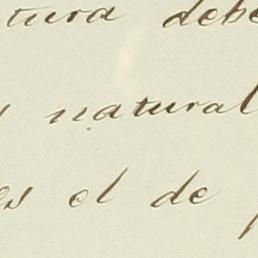 tura debe
natural
es el de